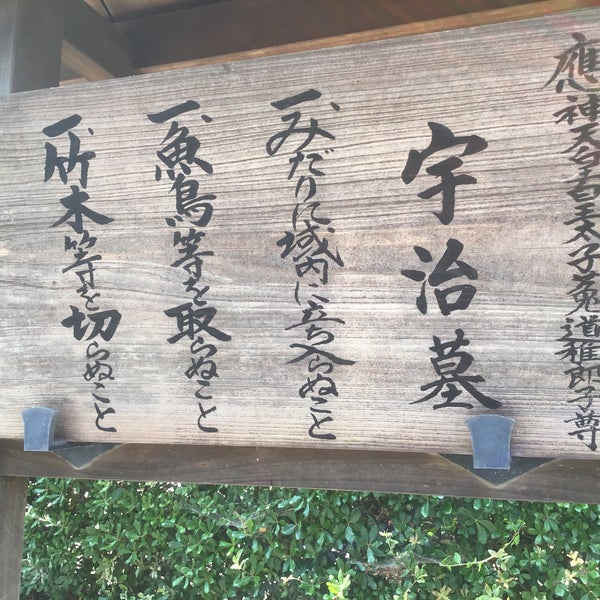 應神天皇皇太子菟道稚郎子尊
宇治墓
一、みだりに域内に立ち入らぬこと
一、魚鳥等を取らぬこと
一、竹木等を切らぬこと